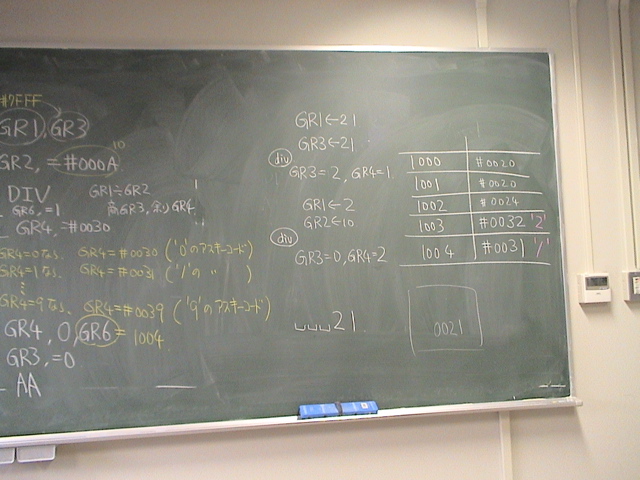 #7FFF
GR1, GR3
GR2, =#000A
10
DIV
GR1÷GR2
GR6, =1
商GR3, 余りGR4
GR4, =#0030
GR4=0なら、 GR4=#0030 ('0'のアスキーコード)
GR4=1なら、 GR4=#0031 ('1'の 〃 )
⋮
GR4=9なら、 GR4=#0039 ('9'のアスキーコード)
GR4, 0, GR6 = 1004
GR3, =0
AA
GR1←21
GR3←21
div
GR3=2, GR4=1
GR1←2
GR2←10
div
GR3=0, GR4=2
␣␣␣21
1000 #0020
1001 #0020
1002 #0024
1003 #0032 '2'
1004 #0031 '1'
0021